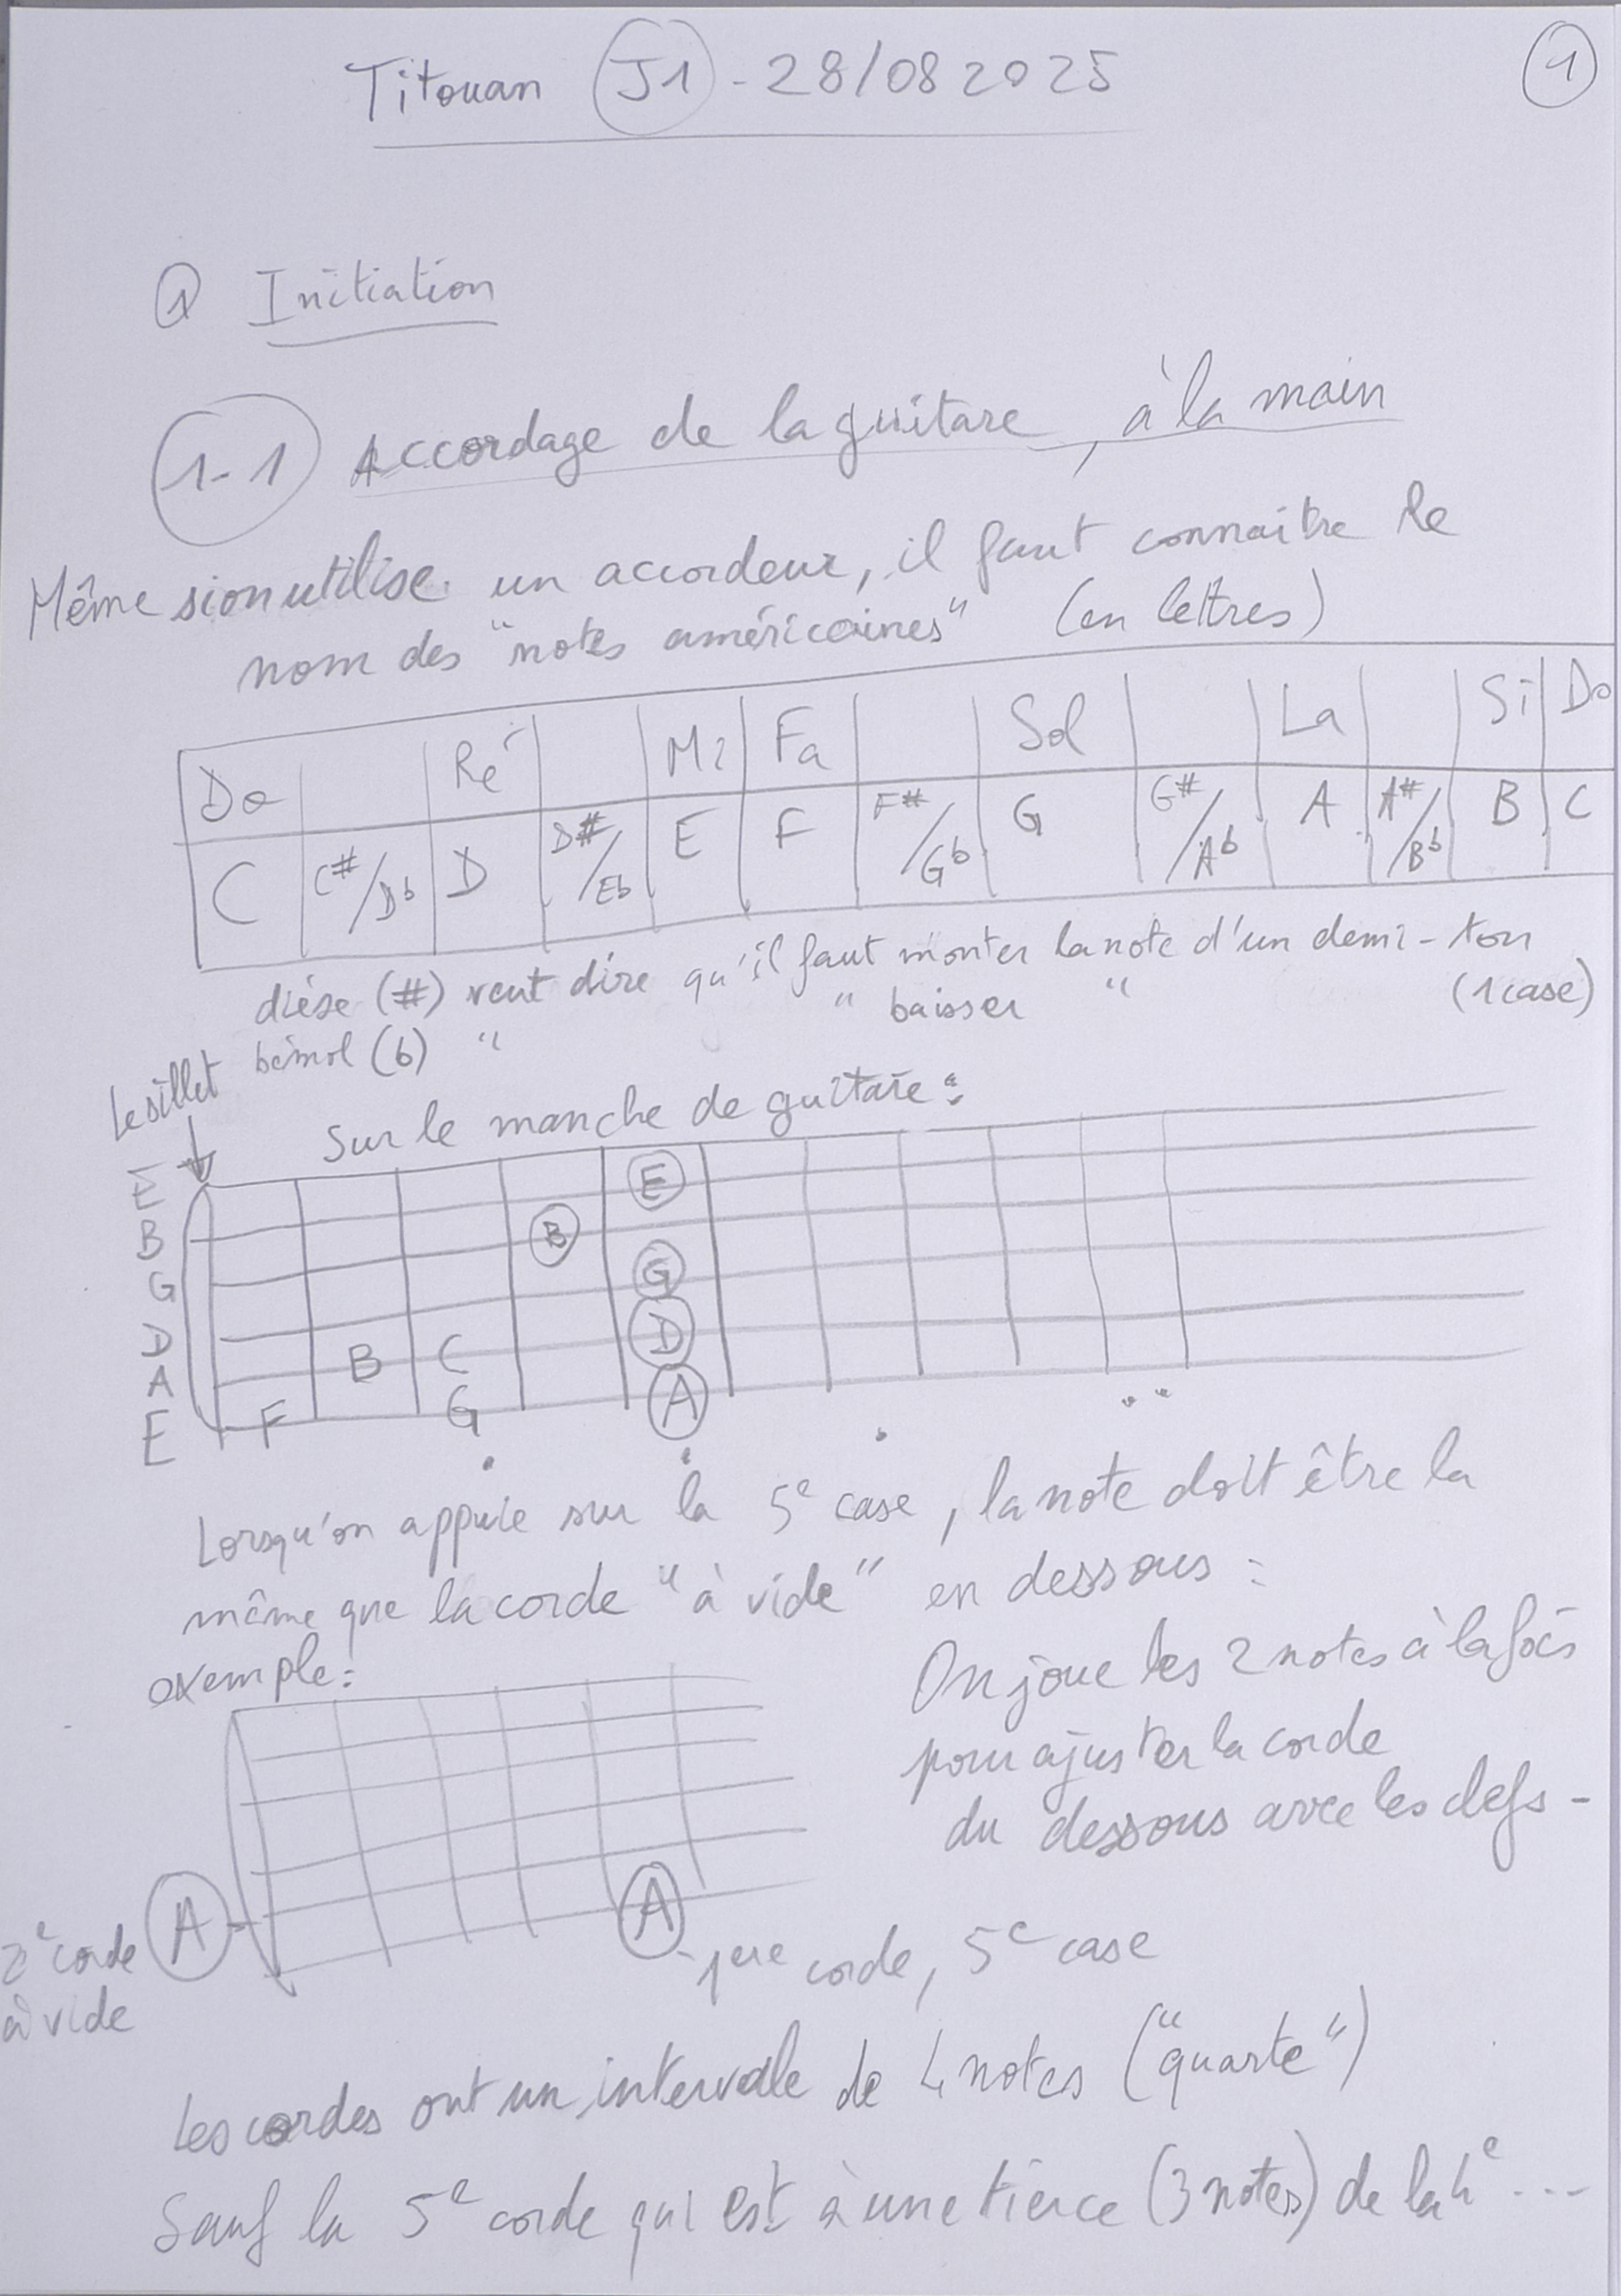 Titouan J1 - 28/08 2025
1
1 Initiation
1-1 Accordage de la guitare, à la main
Même si on utilise un accordeur, il faut connaitre le
nom des "notes américaines" (en lettres)
Do Ré Mi Fa Sol La Si Do
C C#/Db D D#/Eb E F F#/Gb G G#/Ab A A#/Bb B C
dièse (#) veut dire qu'il faut monter la note d'un demi-ton
bémol (b) " " baisser " (1 case)
Le sillet
Sur le manche de guitare :
E E
B B
G G
D D
A B C
E F G A
Lorsqu'on appuie sur la 5e case, la note doit être la
même que la corde "à vide" en dessous :
exemple :
On joue les 2 notes à la fois
pour ajuster la corde
du dessous avec les clefs -
A A
2e corde
à vide
1ere corde, 5e case
Les cordes ont un intervalle de 4 notes ("quarte")
Sauf la 5e corde qui est à une tierce (3 notes) de la 4e ...